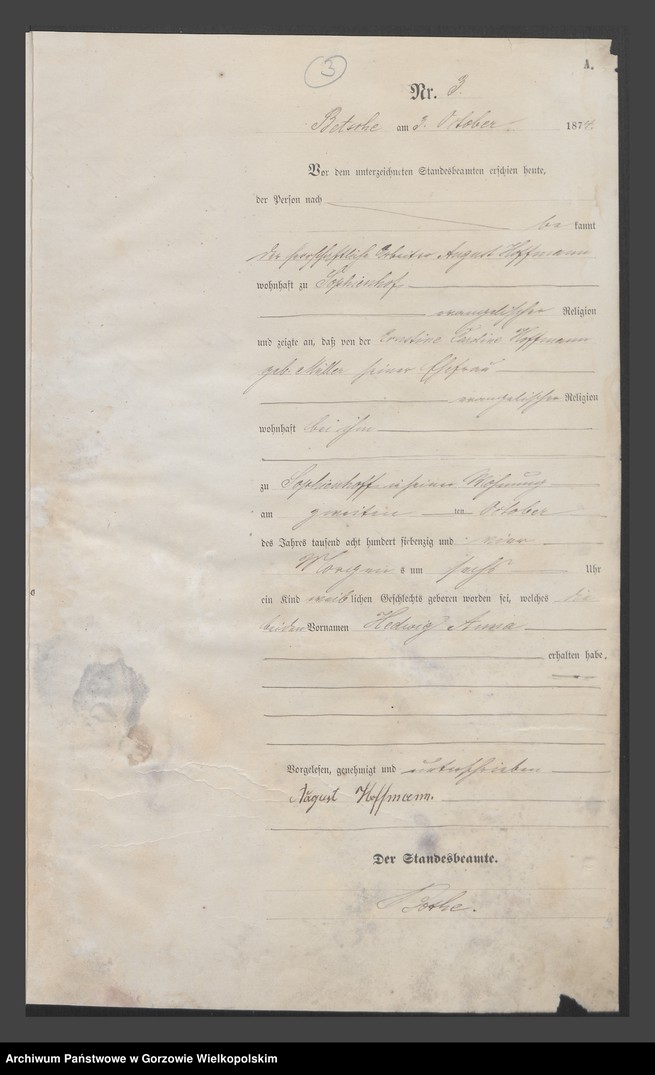 3
A.
Nr. 3.
Betsche am 3. October 1874.
Vor dem unterzeichneten Standesbeamten erschien heute,
der Person nach
be kannt
der herrschaftliche Arbeiter August Hoffmann
wohnhaft zu Sophienhof
evangelischer Religion
und zeigte an, daß von der Ernstine Hoffmann
geb. Müller seiner Ehefrau
evangelischer Religion
wohnhaft bei ihm
zu Sophienhoff in seiner Wohnung
am zweiten ten October
des Jahres tausend acht hundert siebenzig und vier
Morgen s um sechs Uhr
ein Kind weiblichen Geschlechts geboren worden sei, welches die
beiden Vornamen Hedwig Anna
erhalten habe.
Vorgelesen, genehmigt und unterschrieben
August Hoffmann.
Der Standesbeamte.
Bothe.
Archiwum Państwowe w Gorzowie Wielkopolskim